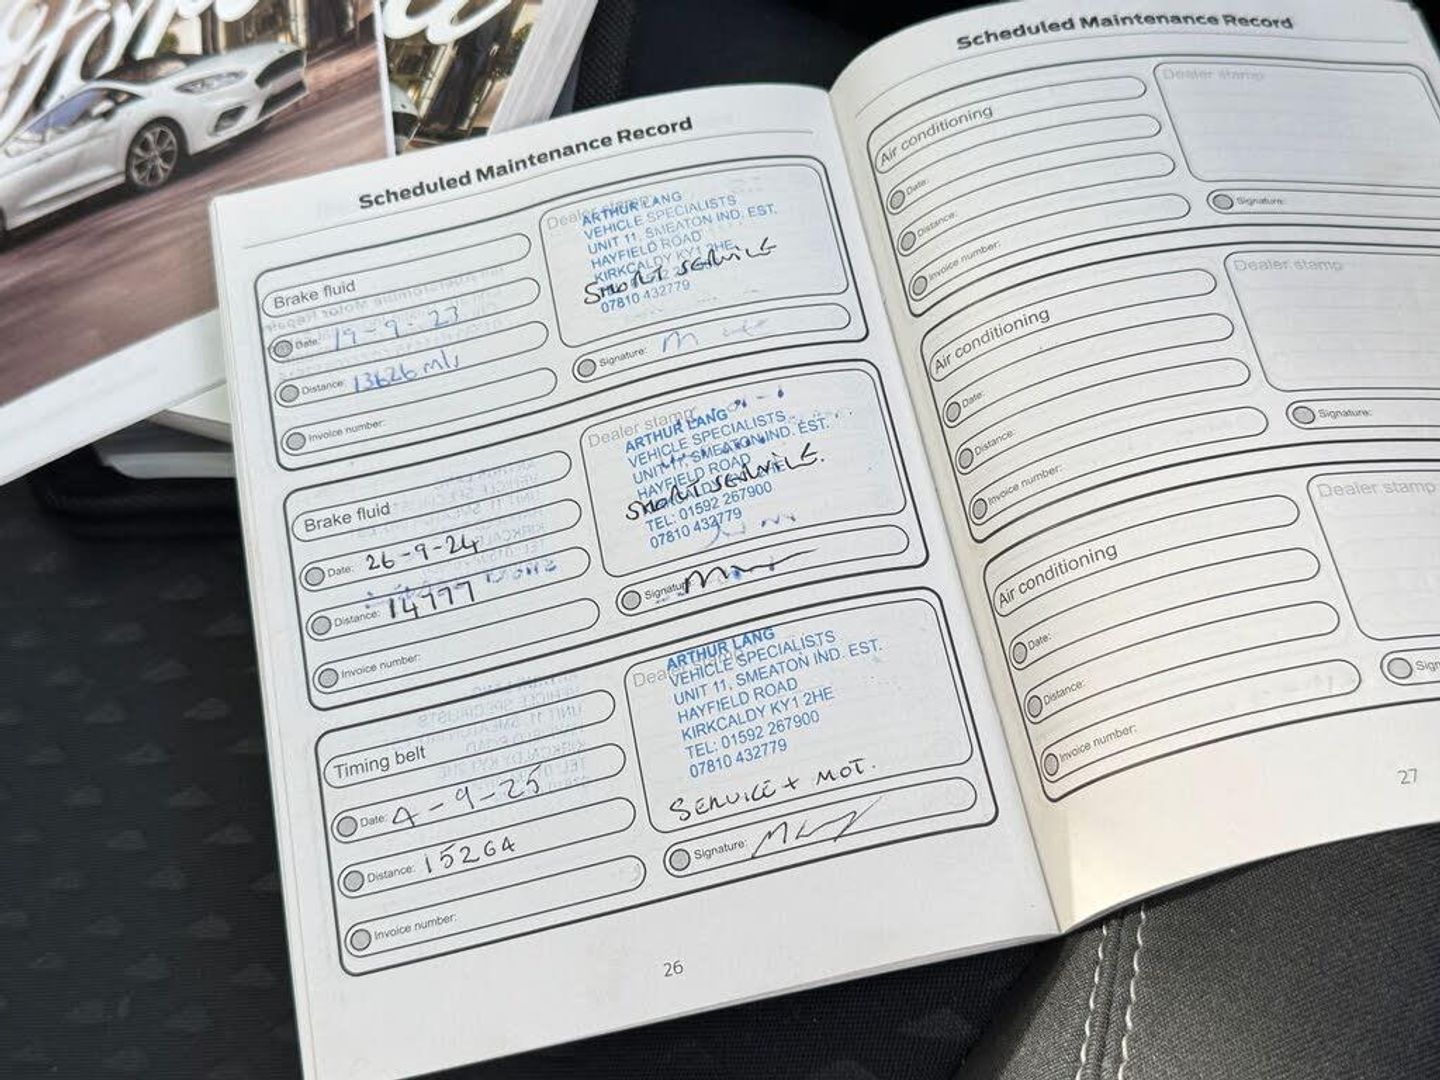 Scheduled Maintenance Record
Brake fluid
Date: 19-9-23
Distance: 13626 mls
Invoice number:
Dealer stamp
ARTHUR LANG
VEHICLE SPECIALISTS
UNIT 11, SMEATON IND. EST.
HAYFIELD ROAD
KIRKCALDY KY1 2HE
SHORT SERVICE
07810 432779
Signature:
Brake fluid
Date: 26-9-24
Distance: 14777
Invoice number:
Dealer stamp
ARTHUR LANG
VEHICLE SPECIALISTS
UNIT 11, SMEATON IND. EST.
HAYFIELD ROAD
SHORT SERVICE.
TEL: 01592 267900
07810 432779
Signature:
Timing belt
Date: 4-9-25
Distance: 15264
Invoice number:
Dealer stamp
ARTHUR LANG
VEHICLE SPECIALISTS
UNIT 11, SMEATON IND. EST.
HAYFIELD ROAD
KIRKCALDY KY1 2HE
TEL: 01592 267900
07810 432779
SERVICE + MOT.
Signature:
26
Scheduled Maintenance Record
Air conditioning
Date:
Distance:
Invoice number:
Dealer stamp
Signature:
Air conditioning
Date:
Distance:
Invoice number:
Dealer stamp
Signature:
Air conditioning
Date:
Distance:
Invoice number:
Dealer stamp
27